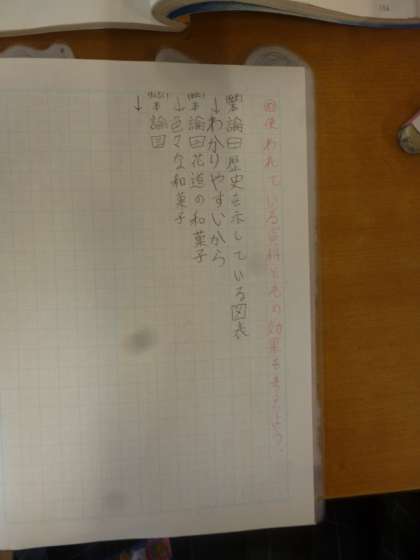 使われている資料とその効果を考えよう。
論曰歴史を示している図表
↓わかりやすいから
本論曰花道の和菓子
↓色々な和菓子
本論図
↓